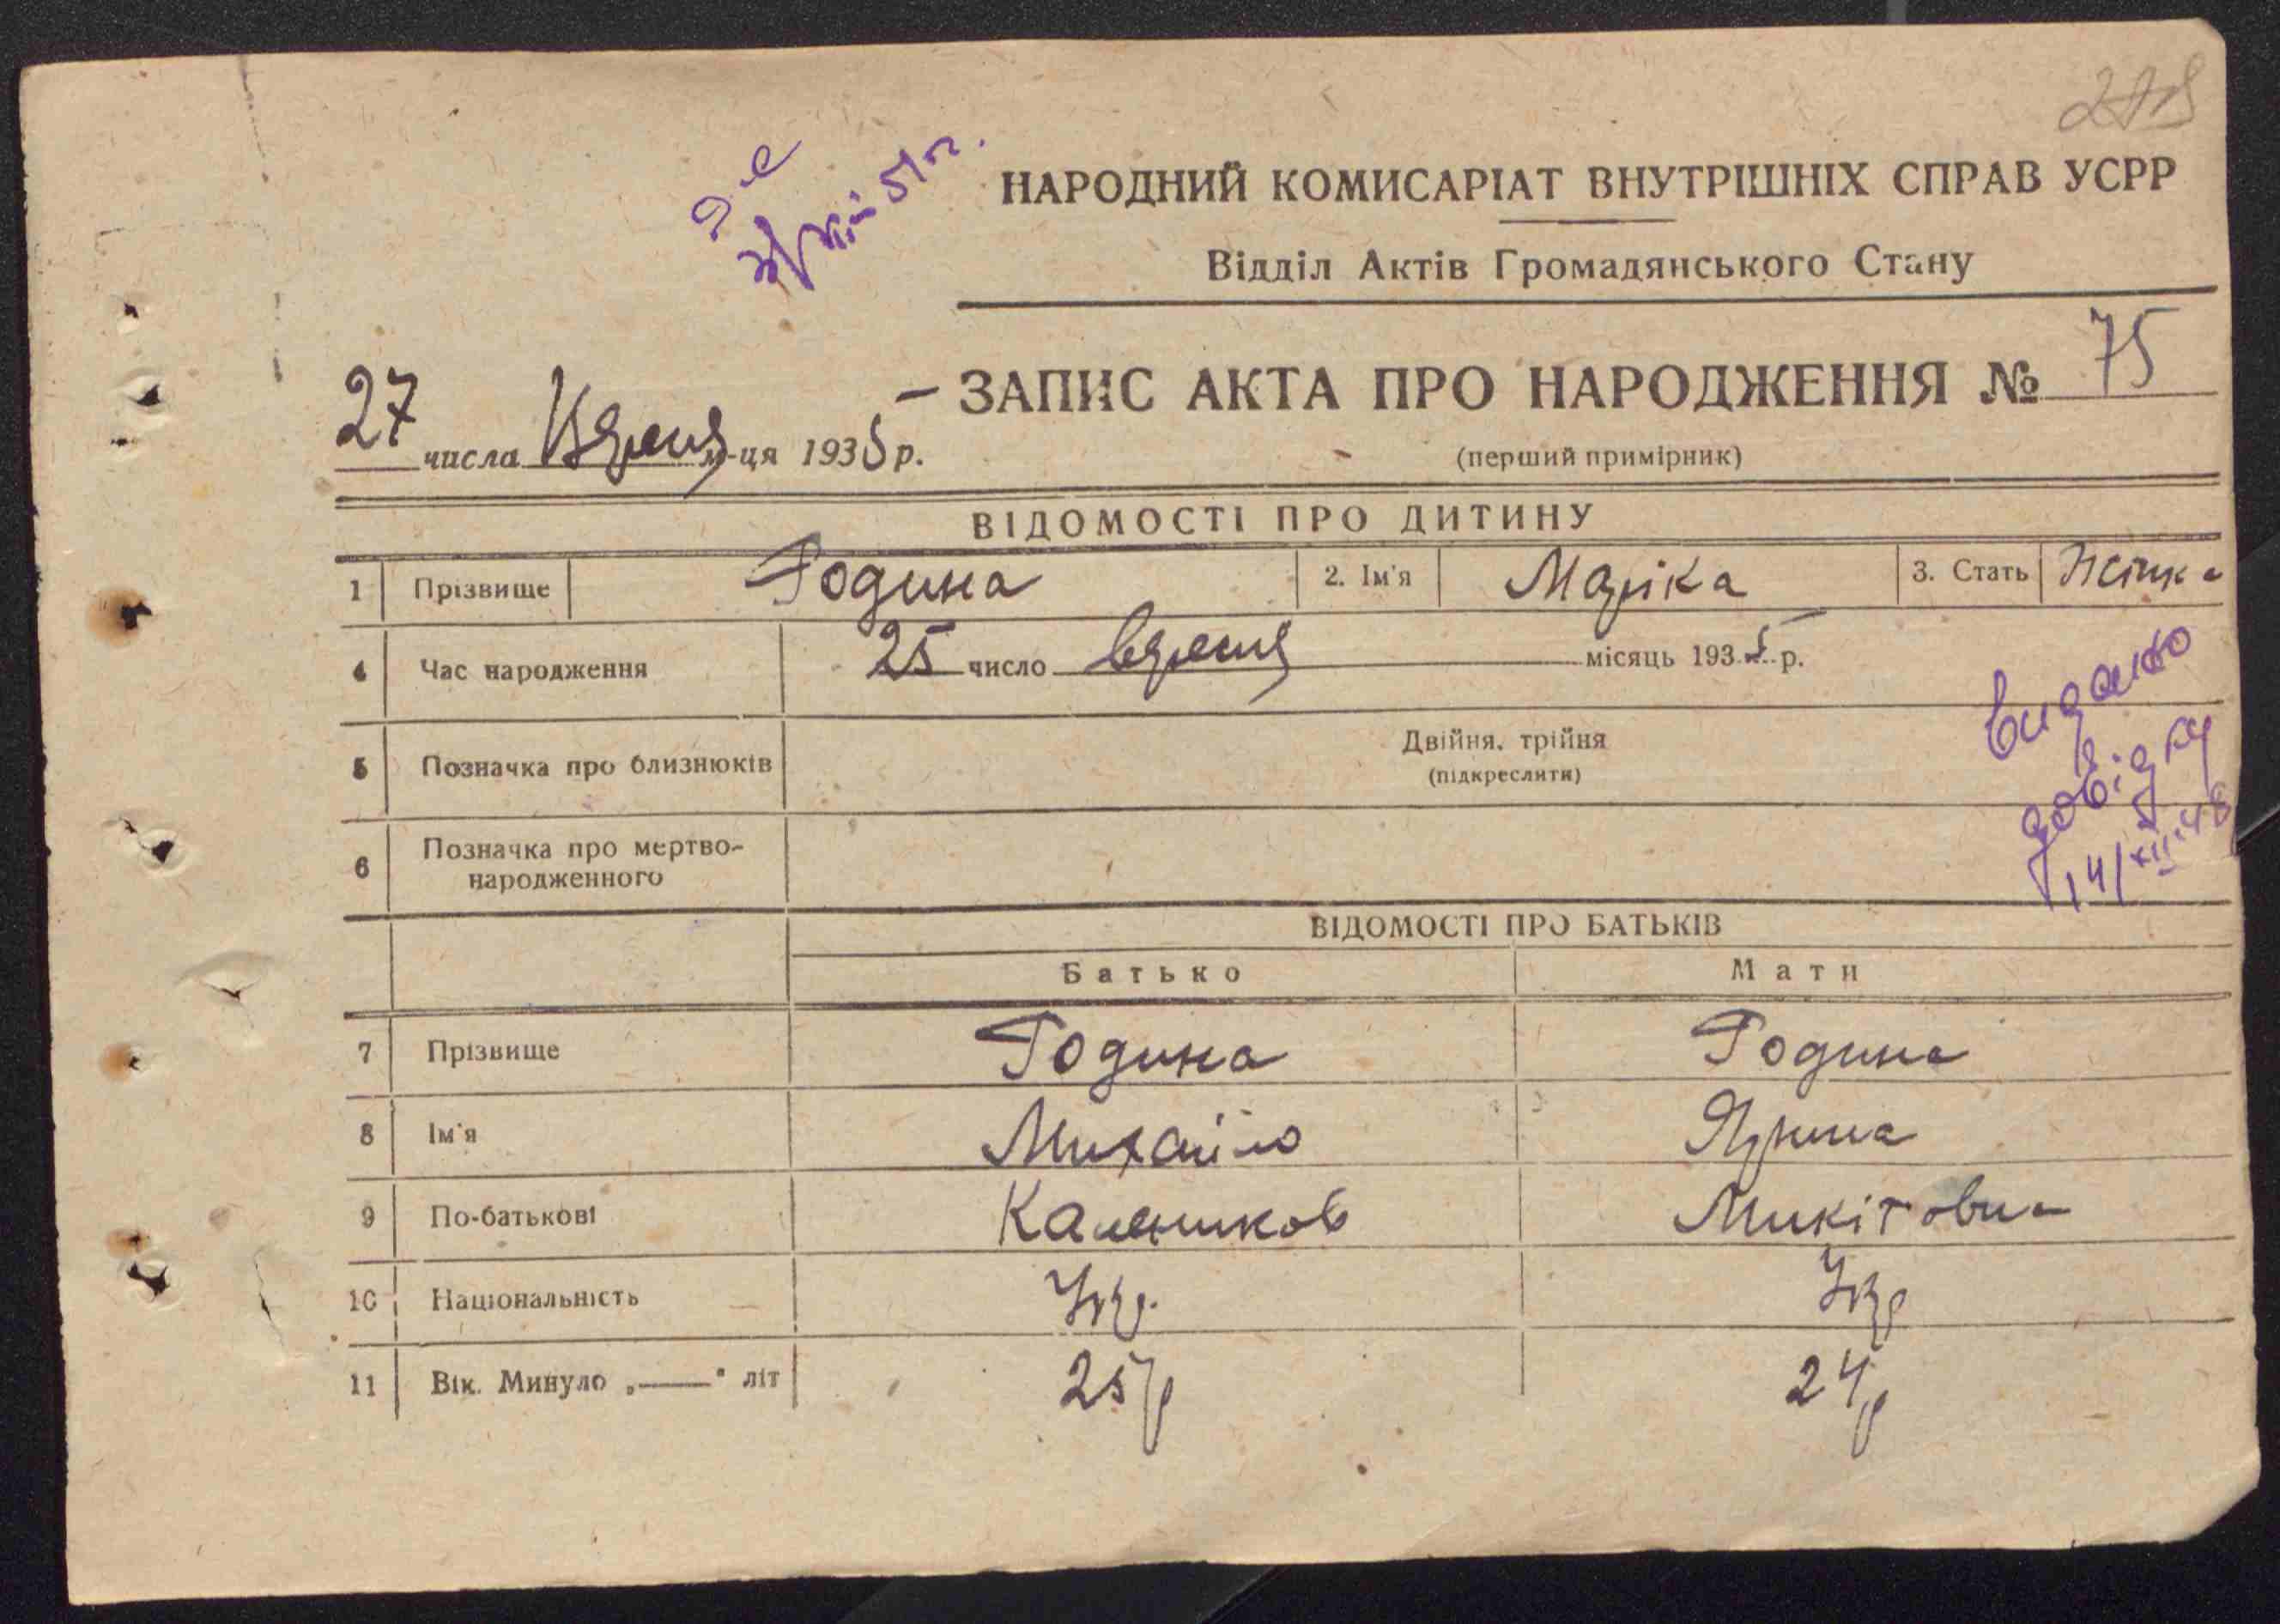 НАРОДНИЙ КОМИСАРІАТ ВНУТРІШНІХ СПРАВ УСРР
Відділ Актів Громадянського Стану
ЗАПИС АКТА ПРО НАРОДЖЕННЯ № 75
27 числа Вересня м-ця 1935 р.
(перший примірник)
ВІДОМОСТІ ПРО ДИТИНУ
1 Прізвище Година 2. Ім'я Маріка 3. Стать Жінка
4 Час народження 25 число вересня місяць 1935 р.
5 Позначка про близнюків Двійня, трійня
(підкреслити)
видано
довідку
14/XII-48
6 Позначка про мертво-
народженного
ВІДОМОСТІ ПРО БАТЬКІВ
Батько Мати
7 Прізвище Година Година
8 Ім'я Михайло Ярина
9 По-батькові Микітовна
10 Національність Укр. Укр
11 Вік. Минуло „——" літ 25 р 24 р